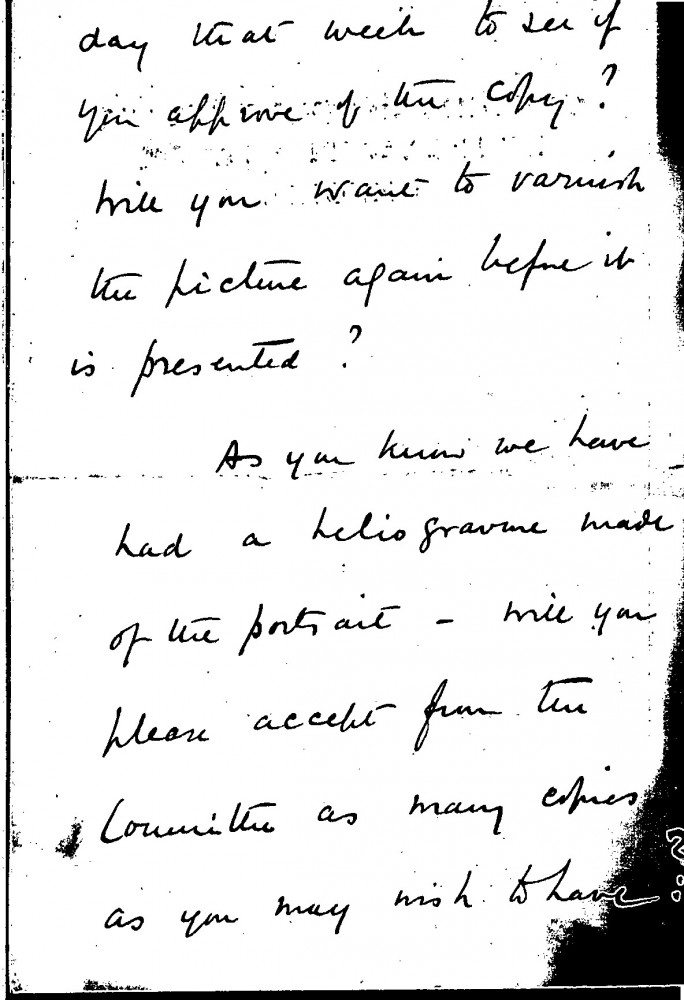 day that week to see if
you approve of the copy?
Will you want to varnish
the picture again before it
is presented?
As you know we have
had a heliogravure made
of the portrait - will you
please accept from the
Committee as many copies
as you may wish to have?